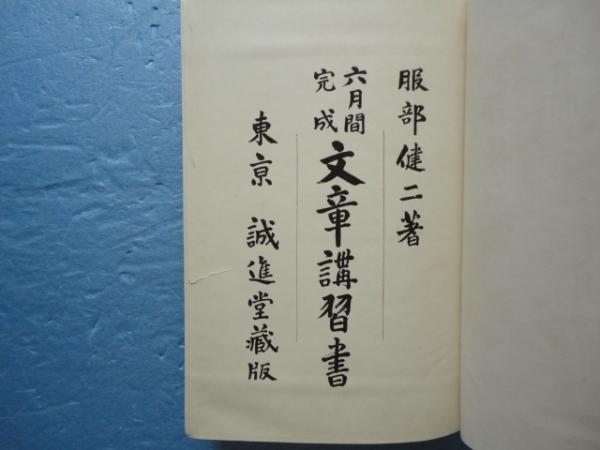 服部健二著
六月間
完成
文章講習書
東京 誠進堂藏版